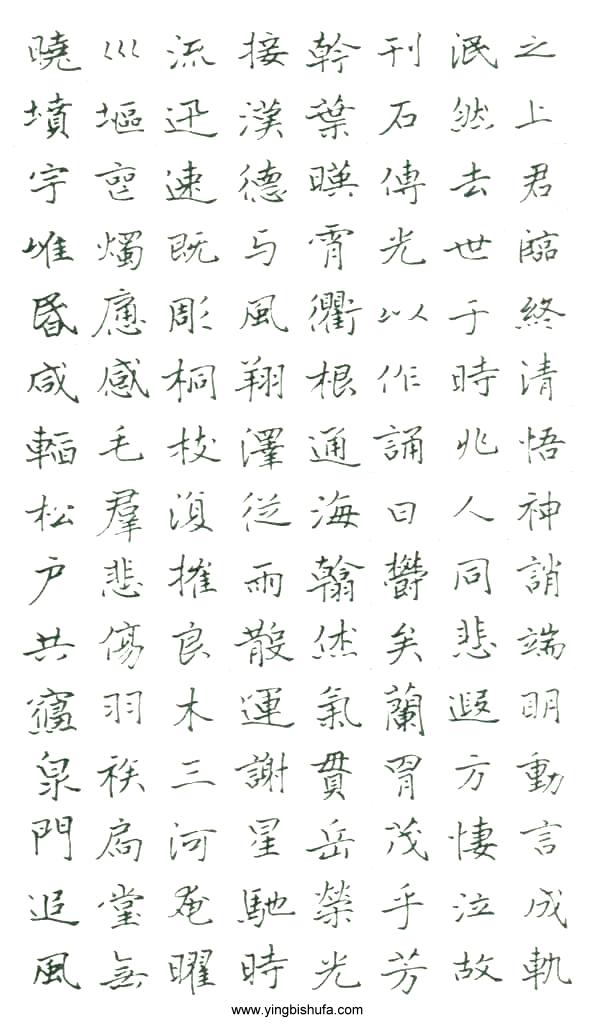 之上君臨終清悟神誚端明動言成軌
泯然去世于時兆人同悲遐方悽泣故
刊石傳光以作誦曰欝矣蘭胄茂乎芳
幹葉暎霄衢根通海翰俶氣貫岳榮光
接漢德与風翔澤從雨散運謝星馳時
流迅速既彫桐枝復摧良木三河奄曜
巛塸喪燭感毛羣悲傷羽族扃堂無
曉墳宇唯昏咸輼松户共寢泉門追風
www.yingbishufa.com